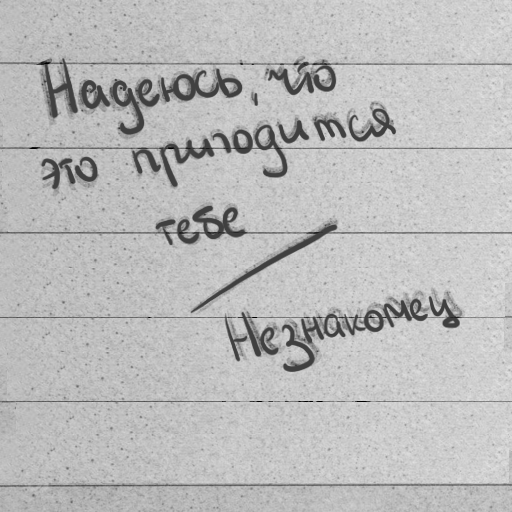 Надеюсь, что
это пригодится
тебе
Незнакомец